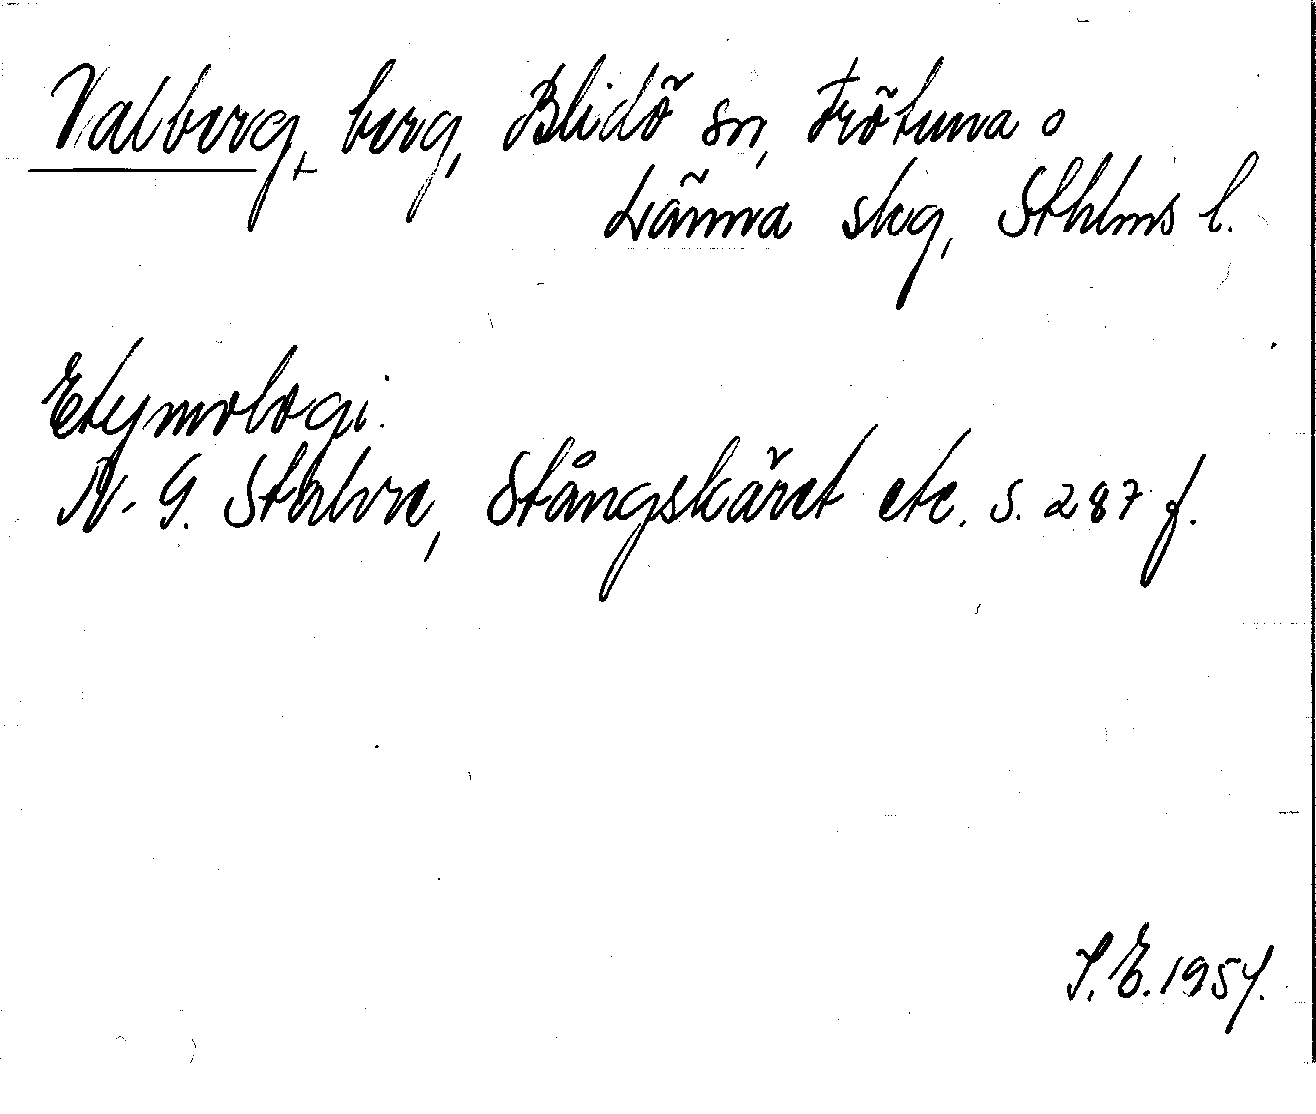 Valberg, berg, Blidö sn, Frötuna o
Länna skg, Sthlms l.
Etymologi.
N. G. Stahre, Stångskäret etc. s. 287 f.
S. E. 1957.